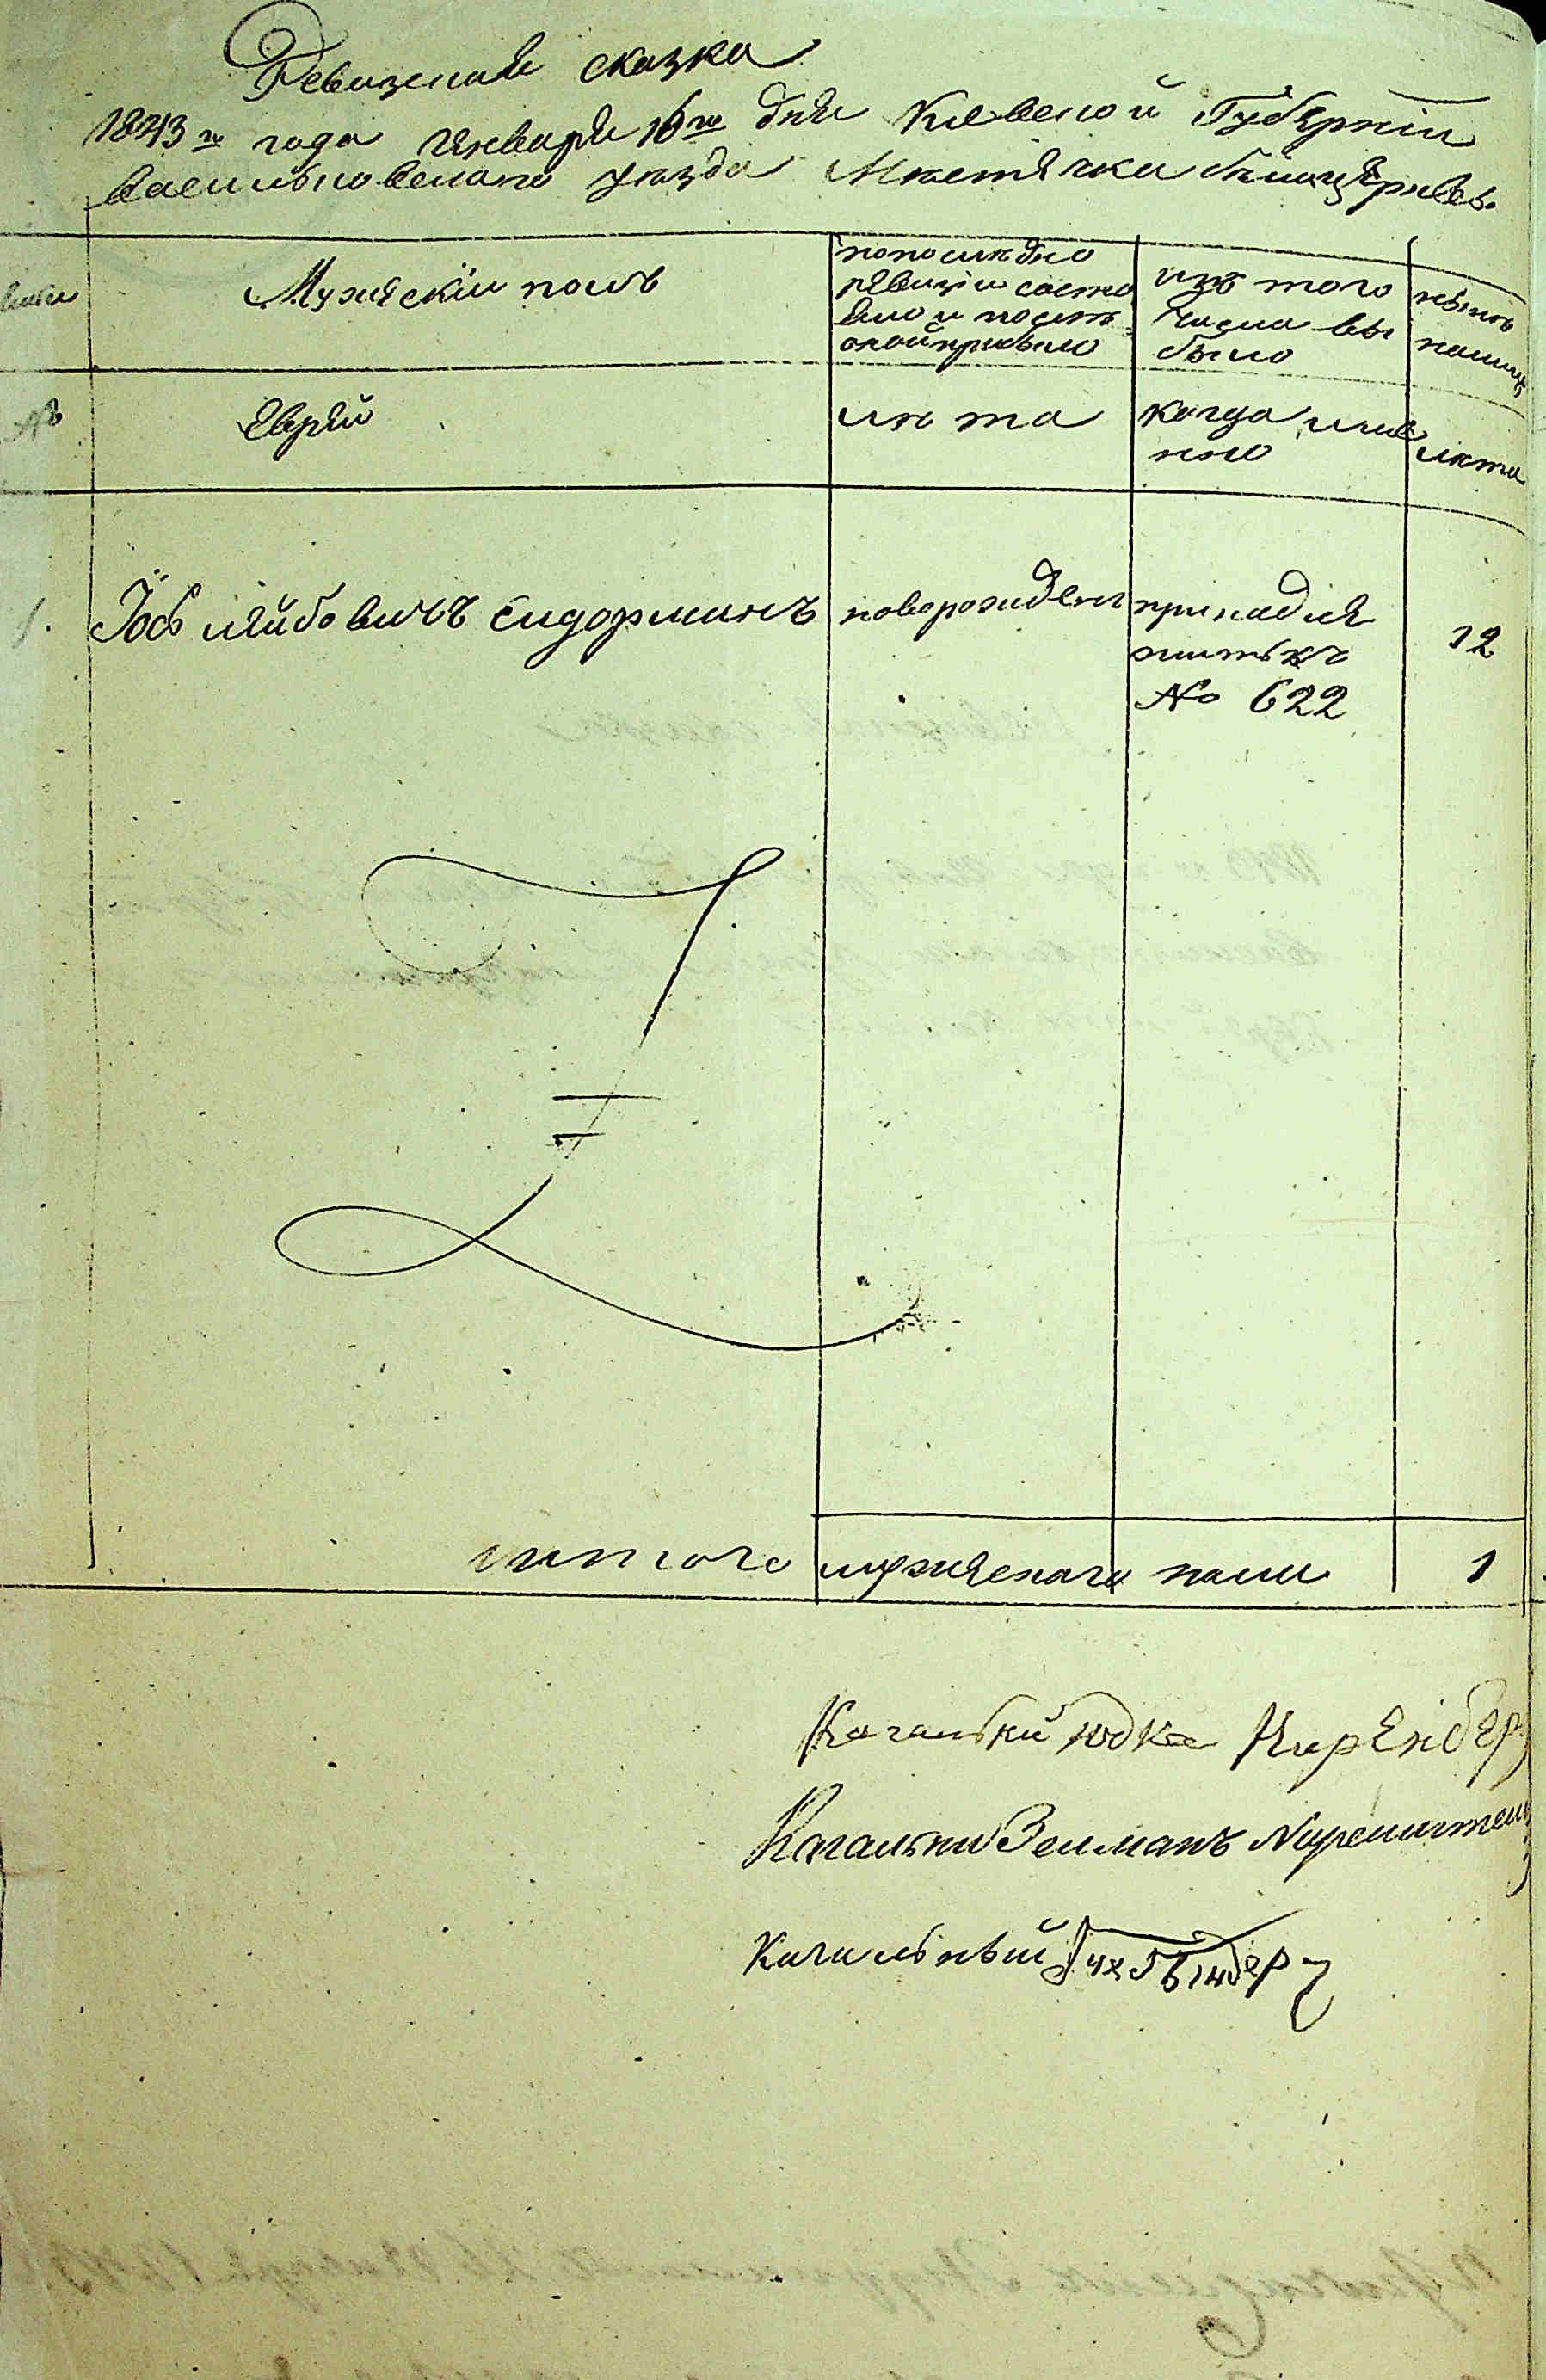 Ревизская сказка
1843го года Января 16го дня Киевской Губерніи
васильковскаго уезда Местечка белоцеркви
Мужескій полъ
попоследно
ревизіи состо
яло и после
оной прибыло
изъ того
числа вы
было
ныне
налицо
№
Еврей
лета
когда имен
но
лета
1.
Іось лейбовичъ сидорманъ
новорожден
принадле
житъ къ
№ 622
12
итого
мужескаго пола
1
Кагальний Юдка НирЕнбЕрг
Кагальни Зелманъ
Кагальный